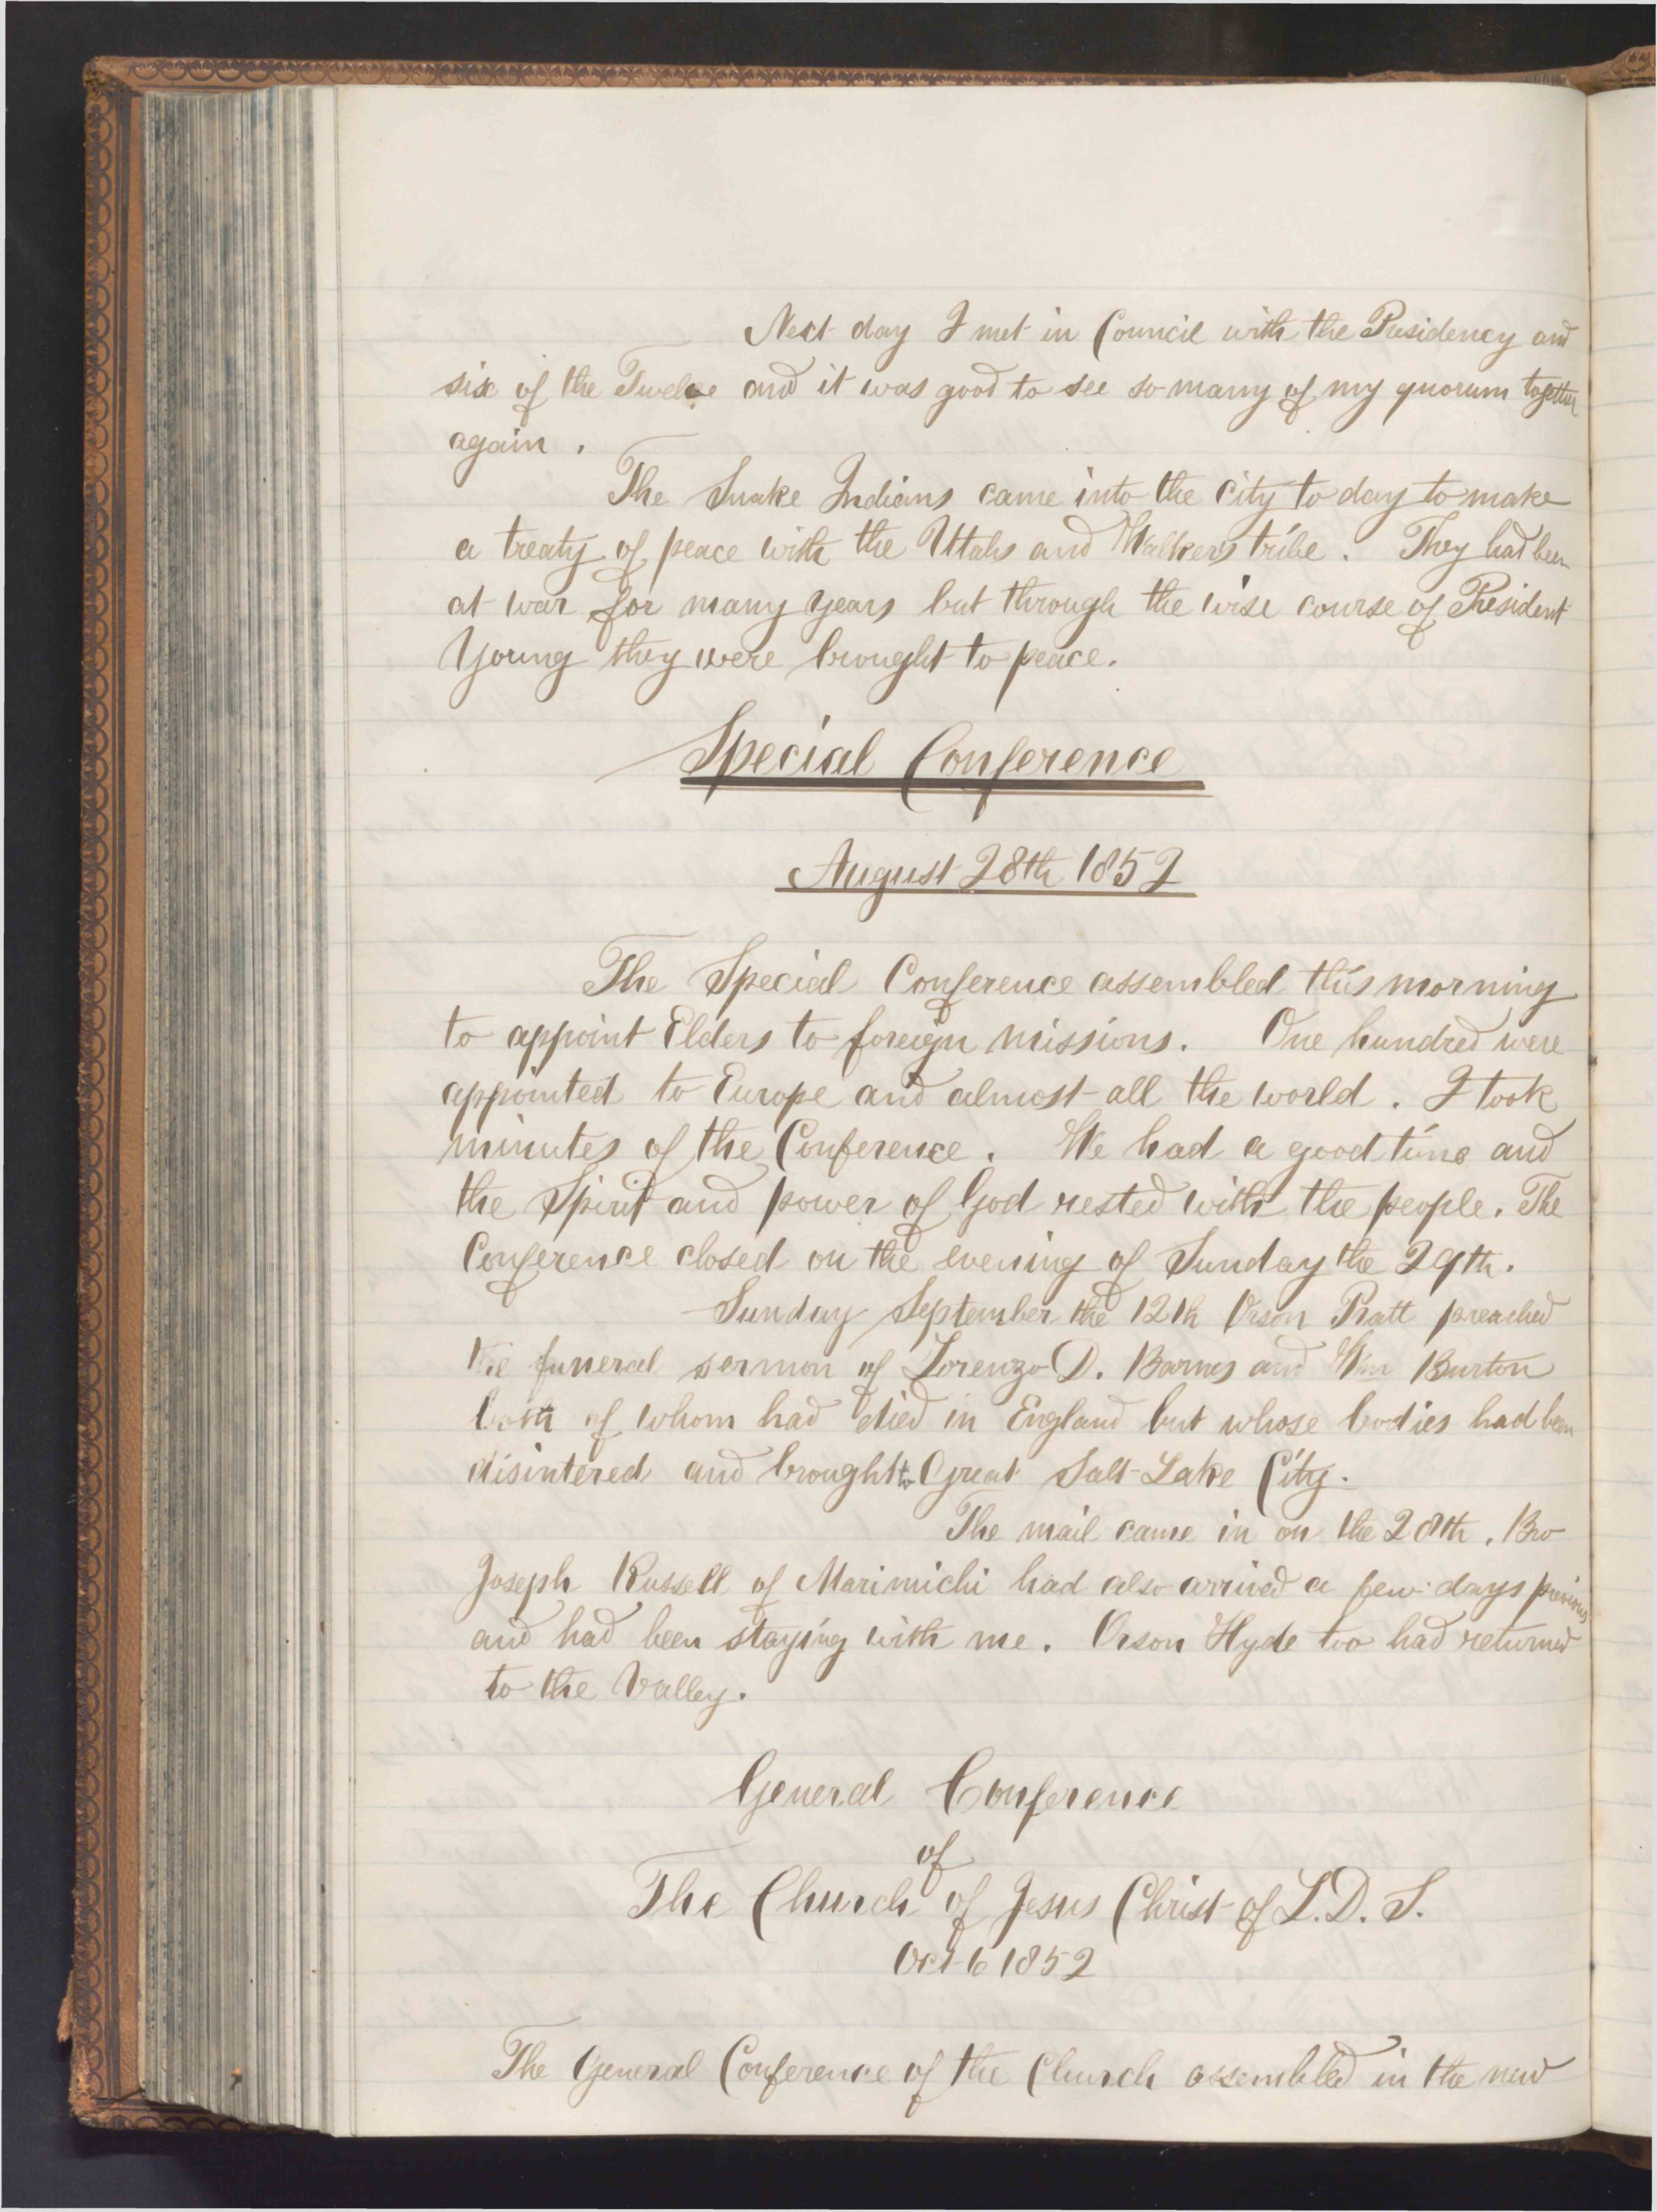 Next day I met in Council with the Presidency and
six of the Twelve and it was good to see so many of my quorum together
again .
The Snake Indians came into the city to day to make
a treaty of peace with the Uttahs and Walkers tribe . They had been
at war for many years but through the wise course of President
Young they were brought to peace.
Special Conference
August 28th 1852
The Special Conference assembled this morning
to appoint Elders to foreign missions. One hundred were
appointed to Europe and almost all the world . I took
minutes of the Conference . We had a good time and
the Spirit and power of God rested with the people. The
Conference closed on the evening of Sunday the 29th.
Sunday September the 12th Orson Pratt preached
the funeral sermon of Lorenzo D. Barnes and Wm Burton
both of whom had died in England but whose bodies had been
disintered and brought to Great Salt Lake City.
The mail came in on the 28th . Bro
Joseph Russell of Marimichi had also arrived a few days previous
and had been staying with me. Orson Hyde too had returned
to the Valley.
General Conference
of
The Church of Jesus Christ of L. D. S.
Oct 6 1852
The General Conference of the Church assembled in the new